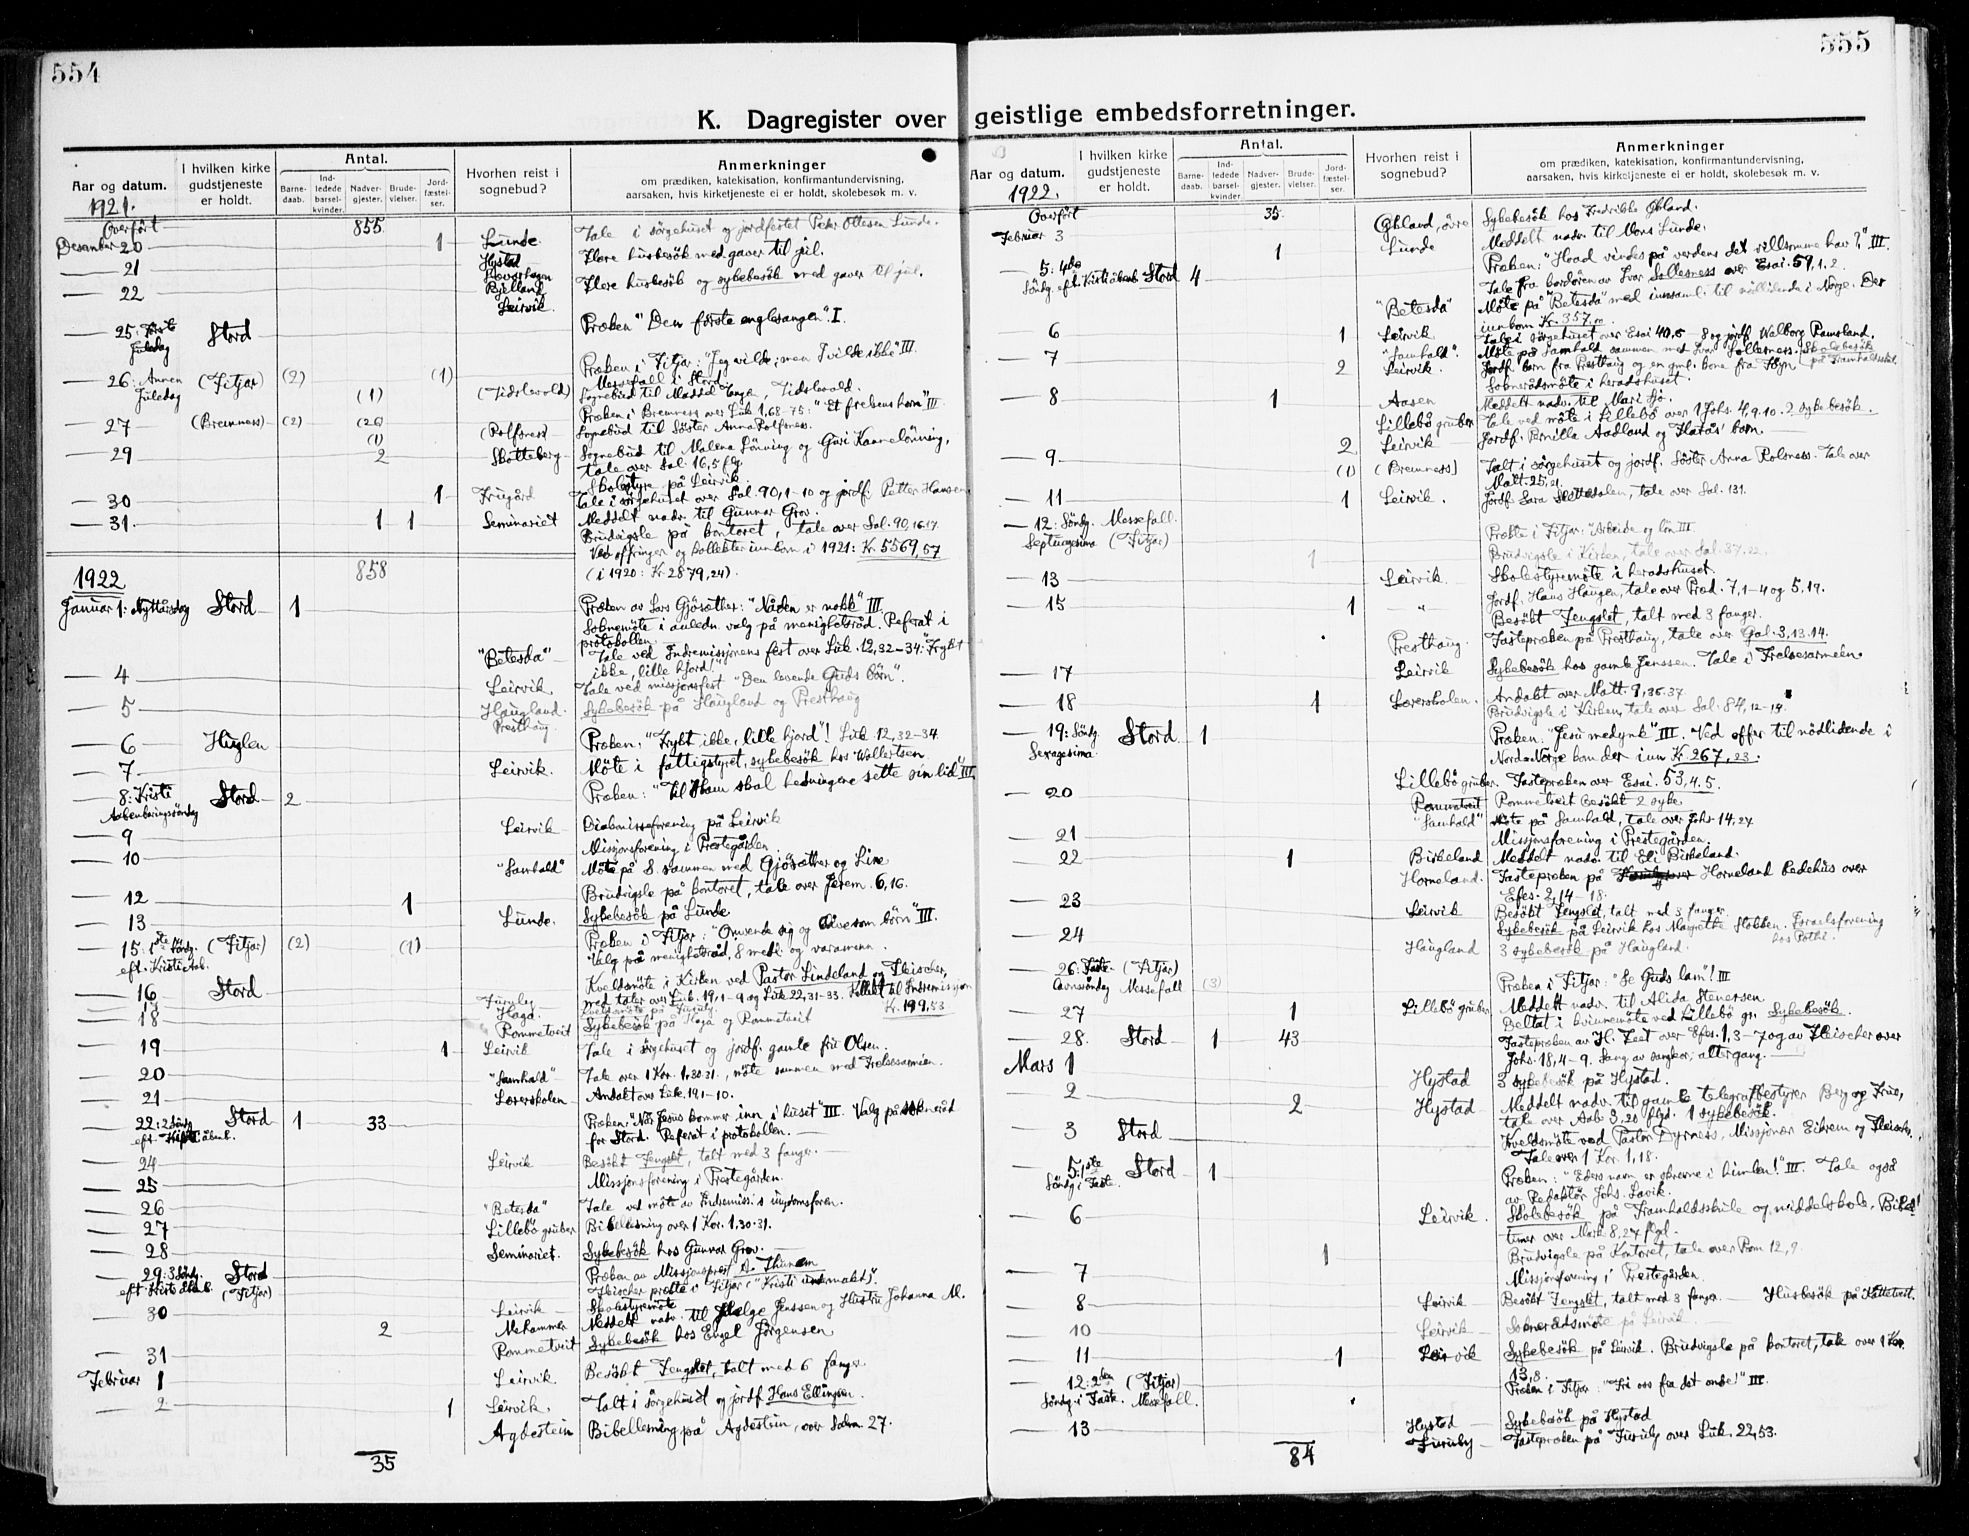 554
K. Dagregister over
Aar og datum.
I hvilken kirke gudstjeneste er holdt.
Antal.
Barne-daab.
Ind-ledede barsel-kvinder.
Nadver-gjester.
Brude-vielser.
Jord-fæstel-ser.
Hvorhen reist i sognebud?
Anmerkninger
om prædiken, katekisation, konfirmantundervisning,
aarsaken, hvis kirketjeneste ei er holdt, skolebesøk m. v.
1921.
Overført 855
Desember 20 1 Lunde. Tale i sørgehuset og jordfestet Peder Ottesen Lunde.
21 Hystad Flere husbesøk med gaver til jul.
22 Bjelland Flere husbesøk og sykebesøk med gaver til jul.
Leirvik.
25. Første Juledag Stord Præken "Den første englesangen". I.
26. Annen Juledag (Fitjar) (2) (1) Præken i Fitjar: "Jeg vilde; men I vilde ikke" III.
Messefall i Stord.
(1) (Tidslevold)
27 (Bremnes) (2) (20) Præken i Bremness over Luk 1,68-75: "Et frelsens horn" III
(1) (Rolfsnes) Sognebud til Søster Anna Rolfsness.
29 2 Skotteberg Sognebud til Malena Lønning og Guri Kannelønning,
tale over Sal. 16,5 flg.
Skolestyre på Leirvik
30 1 Tale i sørgehuset over Sal. 90,1-10 og jordf. Petter Hansen
31. 1 1 Seminariet Meddelt nadv. til Gunnar Grov.
Brudvigsle på kontoret, tale over Sal. 90,16.17.
Ved offringer og kollekter innkom i 1921: Kr. 5569,57
858 (i 1920: Kr. 2879,24).
1922
Januar 1: Nyttårsdag Stord 1 Præken av Lars Gjøsæther: "Nåden er nokk" III
Soknemøte i anledn. valg på menighetsråd. Referat i
protokollen
"Betesda" Tale ved Indremissjonens fest over Luk. 12,32-34: "Frykt
ikke, lille hjord!"
4 Leirvik. Tale ved missjonsfest "Den levende Guds børn".
5 Haugland. Presthaug Sykebesøk på Haugland og Presthaug
6 Huglen Præken: "Frykt ikke, lille hjord"! Luk 12,32-34
7 Leirvik. Møte i fattigstyret, sykebesøk hos Wallertsen
8: Kristi Aabenbaringssöndag Stord 2 Præken: "Til Ham skal hedningene sette sin lid" III.
9 Leirvik Diakonisseforening på Leirvik
10 Missjonsforening i Prestegården
"Samhald" Møte på S. sammen med Gjøsæther og Line
12 1 Brudvigsle på kontoret, tale over Jerem. 6,16.
13 Lunde. Sykebesøk på Lunde
15: 1ste Söndg. eft. Kristi Aab. (Fitjar) (2) (1) Præken i Fitjar: "Omvende sig og blive som børn" III.
Valg på menighetsråd, 8 medl. og varamenn.
16 Stord Kveldsmøte i Kirken ved Pastor Lindeland og Fleischer,
med taler over Luk. 19,1-9 og Luk 22,31-33. Kollekt til Indremissjon
Kr. 199,53
17
18 "Rommetveit Sykebesøk på Haga og Rommetveit
19 1 Leirvik Tale i sørgehuset og jordf. gamle fru Olsen.
20 "Samhald" Tale over 1 Kor. 1,30.31., møte sammen med Frelsesarmeen.
21 Lærerskolen Andakt over Luk. 19,1-10.
22: 2 Søndg eft. Kristi åbenb. Stord 1 33 Præken: "Når Jesus kommer inn i huset" III. Valg på sokneråd
for Stord. Referat i protokollen.
24 Leirvik Besøkt Fengslet, talt med 3 fanger.
25 Missjonsforening i Prestegården.
26 "Betesda" Tale ved møte av Indremiss.s ungdomsforen.
27 Lillebø gruber Bibellesning over 1 Kor. 1.30-31.
28 Seminariet. Sykebesøk hos Gunnar Grov.
29: 3 Söndg. eft. Kristi åbb. Stord (Fitjar) Præken av Missjonsprest A. Thunem
Fleischer prekte i Fitjar
30 Leirvik Skolestyremøte
2 Mehammer Meddelt nadv. til Helge Jenssen og Hustru Johanna M.
Rommetveit Sykebesøk hos Engel Jørgensen
31 Leirvik Besøkt Fengslet, talt med 6 fanger.
Februar 1
2 1 Leirvik. Talt i sørgehuset og jordf. Hans Ellingsen.
Agdestein Bibellesning på Agdestein, over Salm. 27.
35
555
geistlige embedsforretninger.
Aar og datum.
I hvilken kirke gudstjeneste er holdt.
Antal.
Barne-daab.
Ind-ledede barsel-kvinder.
Nadver-gjester.
Brude-vielser.
Jord-fæstel-ser.
Hvorhen reist i sognebud?
Anmerkninger
om prædiken, katekisation, konfirmantundervisning,
aarsaken, hvis kirketjeneste ei er holdt, skolebesøk m. v.
1922.
Overført 35
Februar 3 Øvre Sykebesøk hos Fredrikke
1 Lunde Meddelt nadv. til Mons Lunde.
5: 4de Söndg. eft. Kristi åbenb. Stord 4 Præken: "Hvad vindes på verdens det villsomme hav?" III.
Tale fra bordøren av Ivar Sellesness over Esai. 59,1.2.
"Betesda" Møte på "Betesda" med innsaml. til nödlidende i Norge. Der
innkom Kr. 357,00
6 1 Leirvik Tale i sørgehuset over Esai 40,6-8 og jordf. Walborg Ramsland.
7 "Samhald". Møte på Samhald sammen med Ivar Sellesness. Skolebesøk
2 Leirvik. Jordf. barn fra Presthaug og en gml. kone fra
Soknerådsmøte i heradshuset.
8 1 Aasen Meddelt nadv. til Mari
Lillebø gruber Tale ved møte i Lillebø over 1 Johs. 4,9.10. 2 sykebesøk.
2 Leirvik Jordf. Pernilla Aadland og barn
9 (1) (Bremness) Talt i sørgehuset og jordf. Søster Anna Rolsness. Tale over
Matt. 25,21.
11 1 Leirvik. Jordf. Sara tale over Sal. 131.
12: Söndg. Septuagesima Messefall. (Fitjar) Prekte i Fitjar: "Arbeide og løn III
1 Brudvigsle i Kirken, tale over Sal. 37,22.
13 Leirvik Skolestyremøte i heradshuset.
15 1 — " — Jordf. Hans Haugen, tale over Præd. 7,1-4 og 5,19.
Besøkt Fengslet, talt med 3 fanger.
Presthaug. Fastepræken på Presthaug, tale over Gal. 3,13.14.
17 Leirvik Sykebesøk hos gamle Jenssen. Tale i Frelsesarmeén.
18 1 Lærerskolen. Andakt over Matt. 9,36.37.
Brudvigsle i Kirken, tale over Sal. 84,12-14
19: Söndg. Sexagesima. Stord 1 Præken: "Jesu medynk" III. Ved offer til nödlidende i
Nord-Norge kom der inn Kr. 267,23.
20 Lillebø gruber. Fastepræken over Esai. 53,4.5.
Rommetveit Rommetveit Besøkt 2 syke.
"Samhald" Møte på Samhald, tale over Johs. 14,27
21 Missjonsforening i Prestegården.
22 1 Birkeland Meddelt nadv. til Eli Birkeland.
Horneland. Fastepræken på Horneland bedehus over
Efes. 2,14-18.
23 Leirvik Besøkt Fengslet, talt med 3 fanger.
Sykebesøk på Leirvik hos Margrethe Stokken. Israelsforening
24 Haugland 3 sykebesøk på Haugland.
26: Faste-lavnssöndag (Fitjar) Messefall (3) Præken i Fitjar: "Se Guds lam"! III
27 1 Lillebø gruber Meddelt nadv. til Alida Stenersen.
Deltat i kvinnemøte ved Lillebø gr. Sykebesøk.
28. Stord 1 43 Fastepræken av H. Zeet over Efes. 1,3-7 og av Fleischer over
Johs. 18,4-9. Sang av sangkor; altergang.
Mars 1 Hystad 3 sykebesøk på Hystad.
2 2 Hystad Meddelt nadv. til gamle telegrafbestyrer Berg og Frue,
tale over Aab. 3,20 flgd. 1 sykebesøk.
3 Stord Kveldsmøte ved Pastor Dyrness, Missjonær Eikrem og Fleischer.
Tale over 1 Kor. 1,18.
5: 1ste Söndg i Faste. Stord 1 Præken: "Eders navn er skrevne i himlen!" III. Tale også
av Redaktør Johs. Lavik.
6 Leirvik. Skolebesøk på Framhaldsskule og middelskole. Bibel-
timer over Mark 8,27 flgd.
1 Brudvigsle på Kontoret, tale over Rom 12,9.
7 Missjonsforening i Prestegården.
8 Leirvik Besøkt Fengslet, talt med 3 fanger. Husbesøk på
10 Leirvik Soknerådsmøte på Leirvik.
11 1 Leirvik Sykebesøk på Leirvik. Brudvigsle på kontoret, tale over 1 Kor.
13,8.
12: 2den Söndg. i Faste. (Fitjar) Messefall. Præken i Fitjar: "Fri oss fra det onde!" III.
13 Hystad Sykebesøk på Hystad
Furuby Fastepræken på Furuby over Luk. 22,53.
84